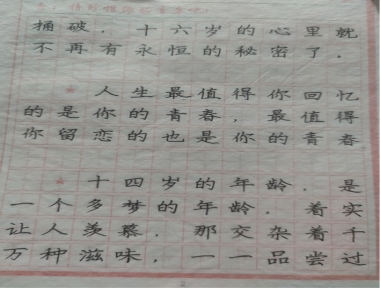 捅破，十六岁的心里就
不再有永恒的秘密了．
★ 人生最值得你回忆
的是你的青春，最值得
你留恋的也是你的青春
★ 十四岁的年龄．是
一个多梦的年龄．着实
让人羡慕．那交杂着千
万种滋味，一一品尝过